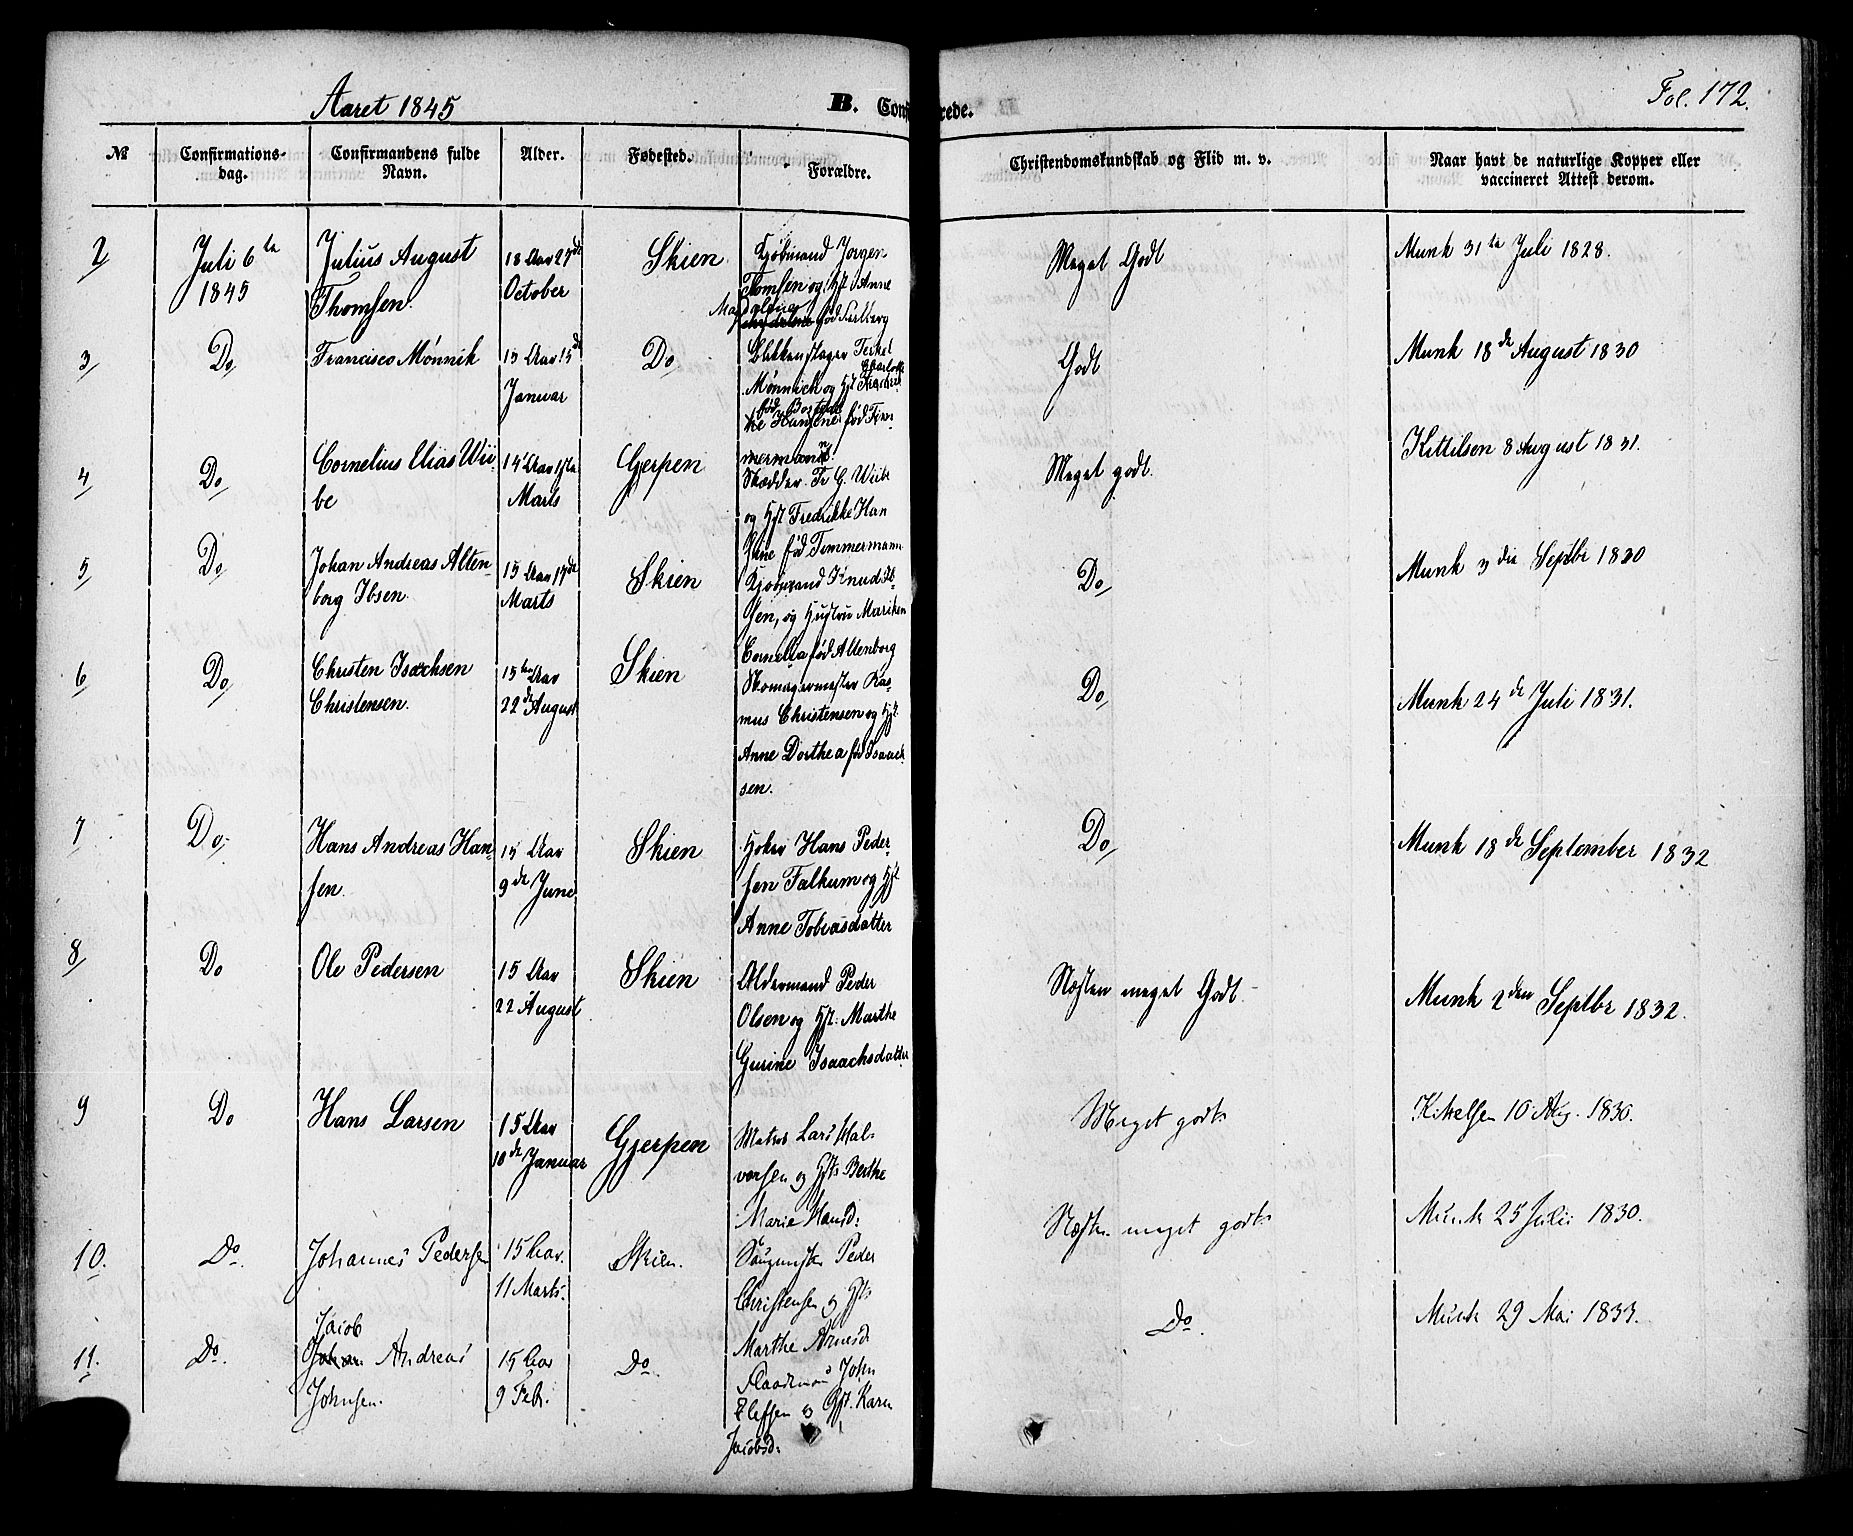 Aaret 1845
B. Conf rede.
Fol. 172.
№ Confirmations-dag. Confirmandens fulde Navn. Alder. Fødested. Forældre. Christendomskundskab og Flid m. v. Naar havt de naturlige Kopper eller vaccineret Attest derom.
2/ Juli 6te 1845 Julius August Thomsen. 18 Aar 27de October Skien Kjøbmand Jørgen Thomsen og Hst Anne Magdalena født Meget Godt Munk 31te Juli 1828.
3/ Do/ Francisco Mønnik 15 Aar 15de Januar Do/ Blikkenslager Terkel Mønnich og Hst Charlotte født Godt Munk 18de August 1830
4/ Do/ Cornelius Elias Wiibe 14 Aar Marts Gjerpen Skrædder Fr G. Wiibe og Hst Fredrikke Hansine født Timmermann Meget godt. Kittilsen 8 August 1831.
5/ Do/ Johan Andreas Altenborg Ibsen. 15 Aar 17de Marts Skien Kjøbmand Knud Ibsen, og Hustru Mariken Cornelia født Altenborg Do/ Munk 3die Septbr 1830
6/ Do/ Christen Isachsen Christensen. 15 Aar 22de August Skien Skomagermester Rasmus Christensen og Hst. Anne Dorthea født Isaachsen. Do/ Munk 24de Juli 1831.
7 Do/ Hans Andreas Hansen. 15 Aar 9de June Skien Høker Hans Pedersen Falkum og Hst Anne Tobiasdatter Do/ Munk 18de September 1832
8/ Do Ole Pedersen 15 Aar 22 August Skien Oldermand Peder Olsen og Hst. Marthe Gurine Isaachsdatter Næsten meget Godt Munk 2den Septbr 1832.
9 Do Hans Larsen 15 Aar 10de Januar Gjerpen Matros Lars Halvorsen og Hst Berthe Marie Hansd: Meget godt Kittelsen 10 Aug. 1830.
10. Do. Johannes Pedersen 15 Aar. 11 Marts. Skien. Peder Christensen og Hst Marthe Arnesd Næsten meget godt Munk 25 Juli 1830.
11. Do. Jacob Andreas Johnsen. 15 Aar 9 Feb. Do. John Elefsen og Hst. Karen Jacobsd: Do. Munk 29 Mai 1833.